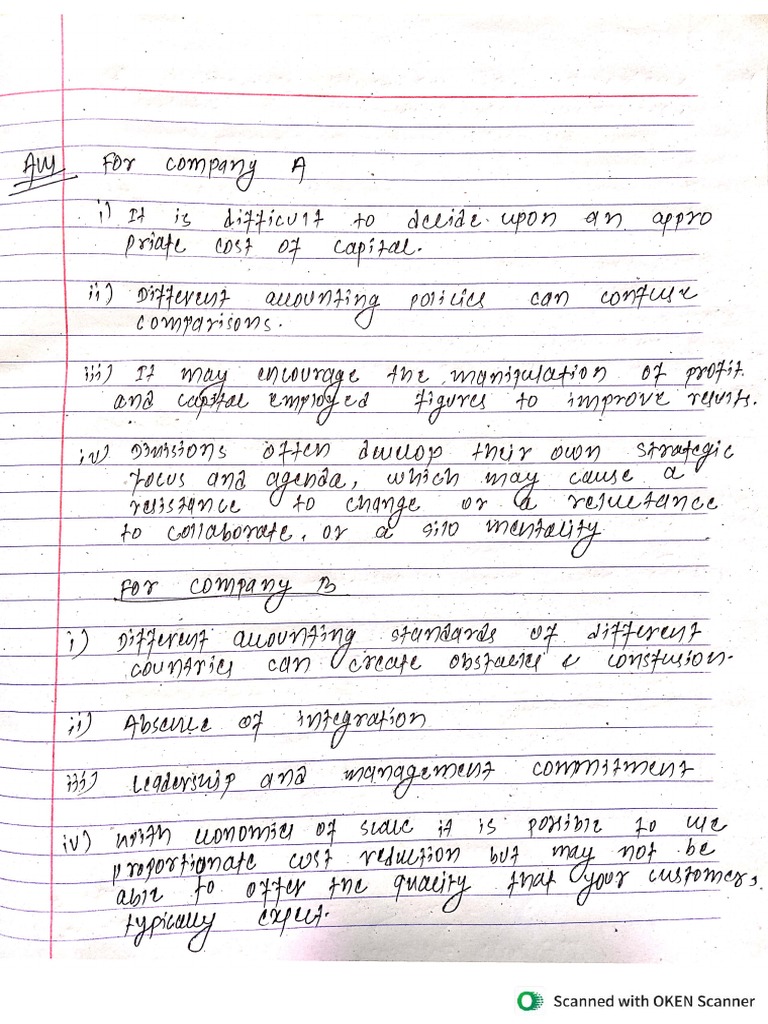 Ans For company A
i) It is difficult to decide upon an appro
priate cost of capital.
ii) Different accounting policies can confuse
comparisons.
iii) It may encourage the manipulation of profit
and capital employed figures to improve results.
iv) Divisions often develop their own strategic
focus and agenda, which may cause a
resistance to change or a reluctance
to collaborate, or a silo mentality
For company B
i) Different accounting standards of different
countries can create obstacles & constusion.
ii) Absence of integration
iii) Leadership and management commitment
iv) With economies of scale it is possible to use
proportionate cost reduction but may not be
able to offer the quality that your customers
typically expect.
Scanned with OKEN Scanner